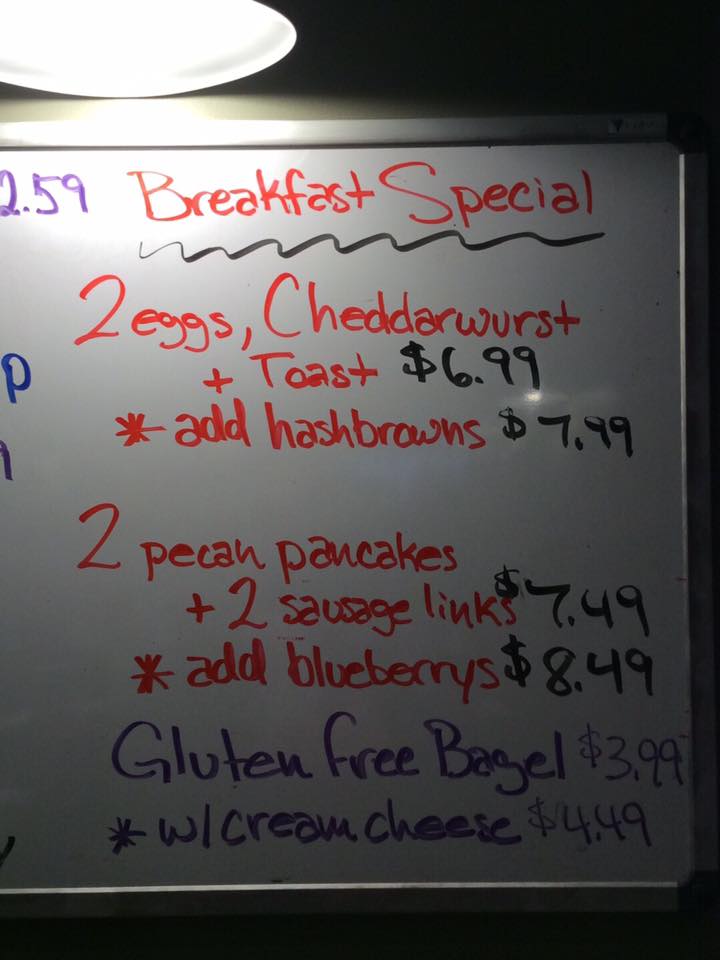 2.59
Breakfast Special
2 eggs, Cheddarwurst
+ Toast $6.99
* add hashbrowns $7.99
2 pecan pancakes
+ 2 sausage links $7.49
* add blueberrys $8.49
Gluten free Bagel $3.99
* w/ cream cheese $4.49
p